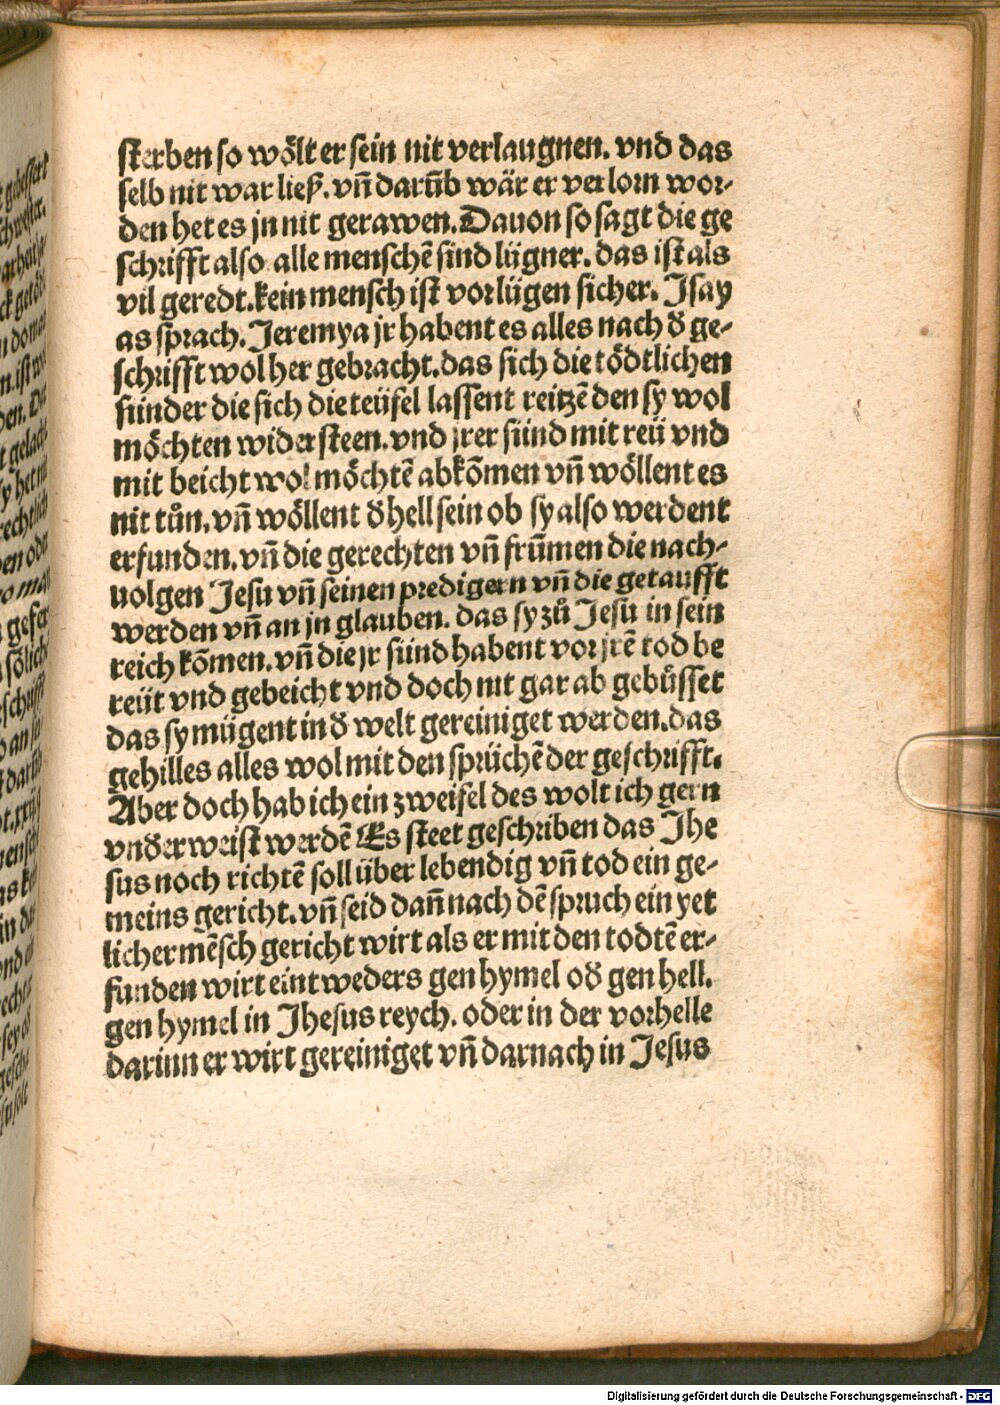 sterben so wölt er sein nit verlaugnen. vnd das
selb nit war ließ. vñ darūb wär er verlorn wor-
den het es jn nit gerawen. Dauon so sagt die ge
schrifft also alle menschē sind lügner. das ist als
vil geredt. kein mensch ist vor lügen sicher. Jsay
as sprach. Jeremya jr habent es alles nach d̕ ge-
schrifft wol her gebracht. das sich die tödtlichen
sünder die sich die teüfel lassent reitzē den sy wol
möchten widersteen. vnd jrer sünd mit reü vnd
mit beicht wol möchtē abkōmen vñ wöllent es
nit tůn. vñ wöllent d̕ hell sein ob sy also werdent
erfunden. vñ die gerechten vñ frūmen die nach-
uolgen Jesu vñ seinen predigern vñ die getaufft
werden vñ an jn glauben. das sy zů Jesu in sein
reich kōmen. vñ die jr sünd habent vor jrē tod be
reüt vnd gebeicht vnd doch nit gar ab gebůsset
das sy mügent in d̕ welt gereiniget werden. das
gehilles alles wol mit den sprüchē der geschrifft.
Aber doch hab ich ein zweifel des wolt ich gern
vnd̕erweist werdē Es steet geschriben das Jhe
sus noch richtē soll über lebendig vñ tod ein ge-
meins gericht. vñ seid dañ nach dē spruch ein yet
licher mēsch gericht wirt als er mit den todtē er-
funden wirt eintweders gen hymel od̕ gen hell.
gen hymel in Jhesus reych. oder in der vorhelle
darinn er wirt gereiniget vñ darnach in Jesus
Digitalisierung gefördert durch die Deutsche Forschungsgemeinschaft - DFG